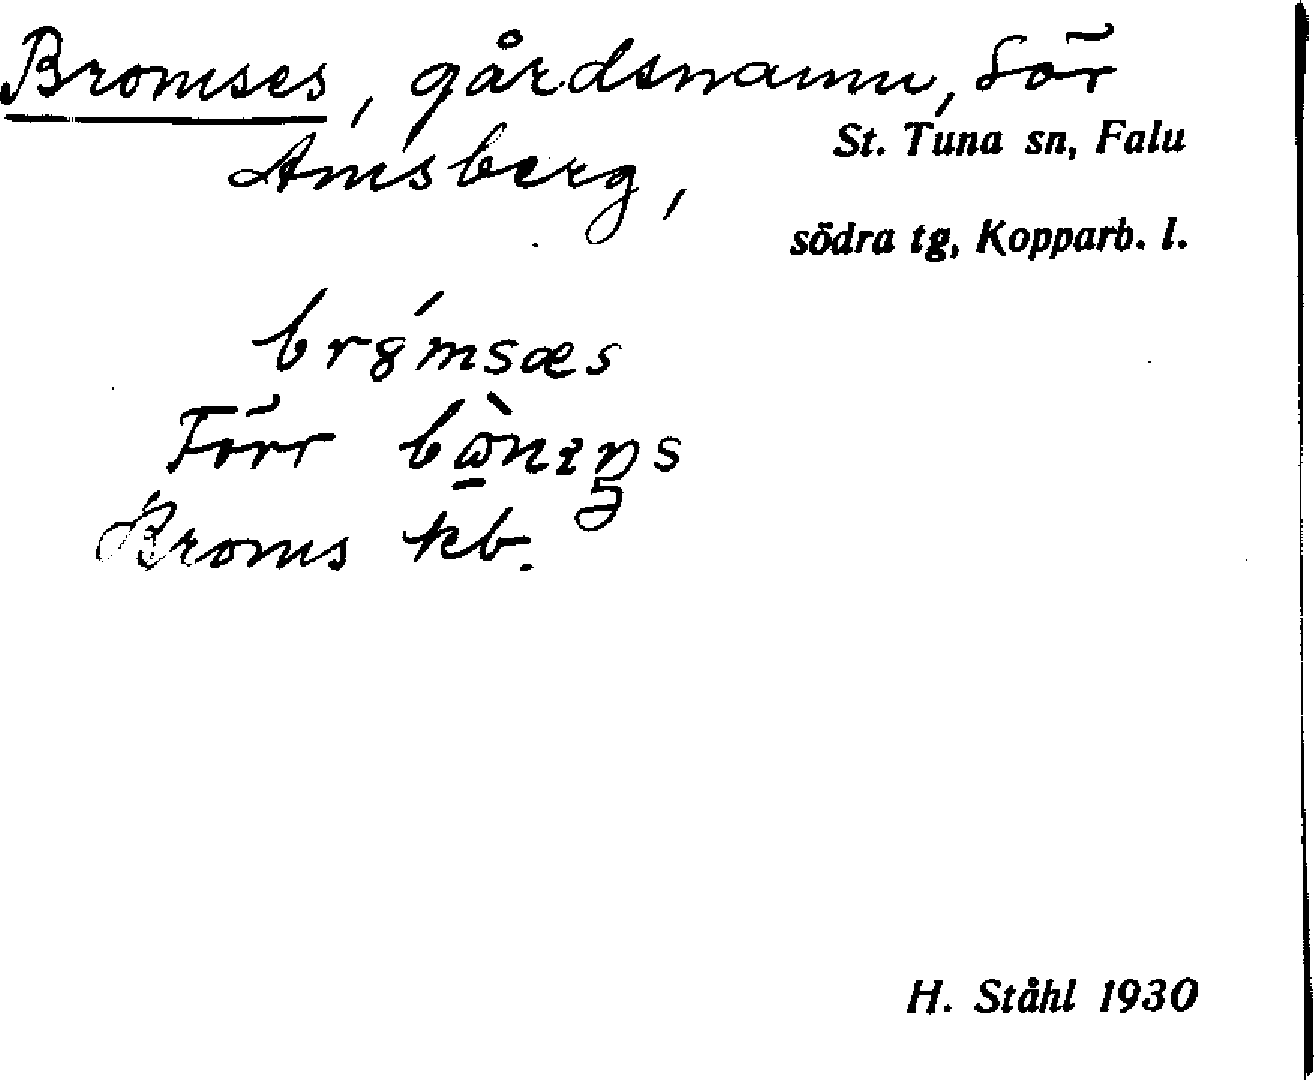 Bromses, gårdsnamn, Sör
Amsberg,
St. Tuna sn, Falu
södra tg, Kopparb. l.
br8́msæs
Förr
Broms kb.
H. Ståhl 1930